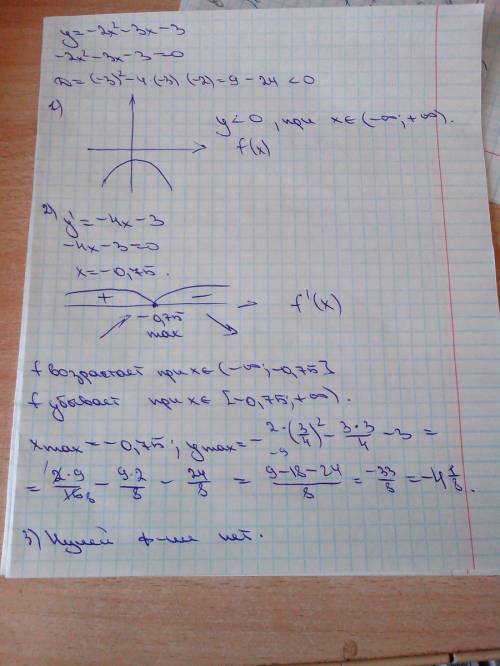 y=-2x²-3x-3
-2x²-3x-3=0
D=(-3)²-4(-3)(-2)=9-24<0
1)
y<0, при x∈(-∞;+∞).
f(x)
2) y'=-4x-3
-4x-3=0
x=-0,75.
+ -
-0,75
max
f'(x)
f возрастает при x∈(-∞;-0,75]
f убывает при x∈[-0,75;+∞).
xmax=-0,75; ymax=-2·(3/4)²-3·3/4-3=
-9
=2·9/16 8-9·2/8-24/8=9-18-24/8=-33/8=-4 1/8.
3) Нулей ф-ии нет.